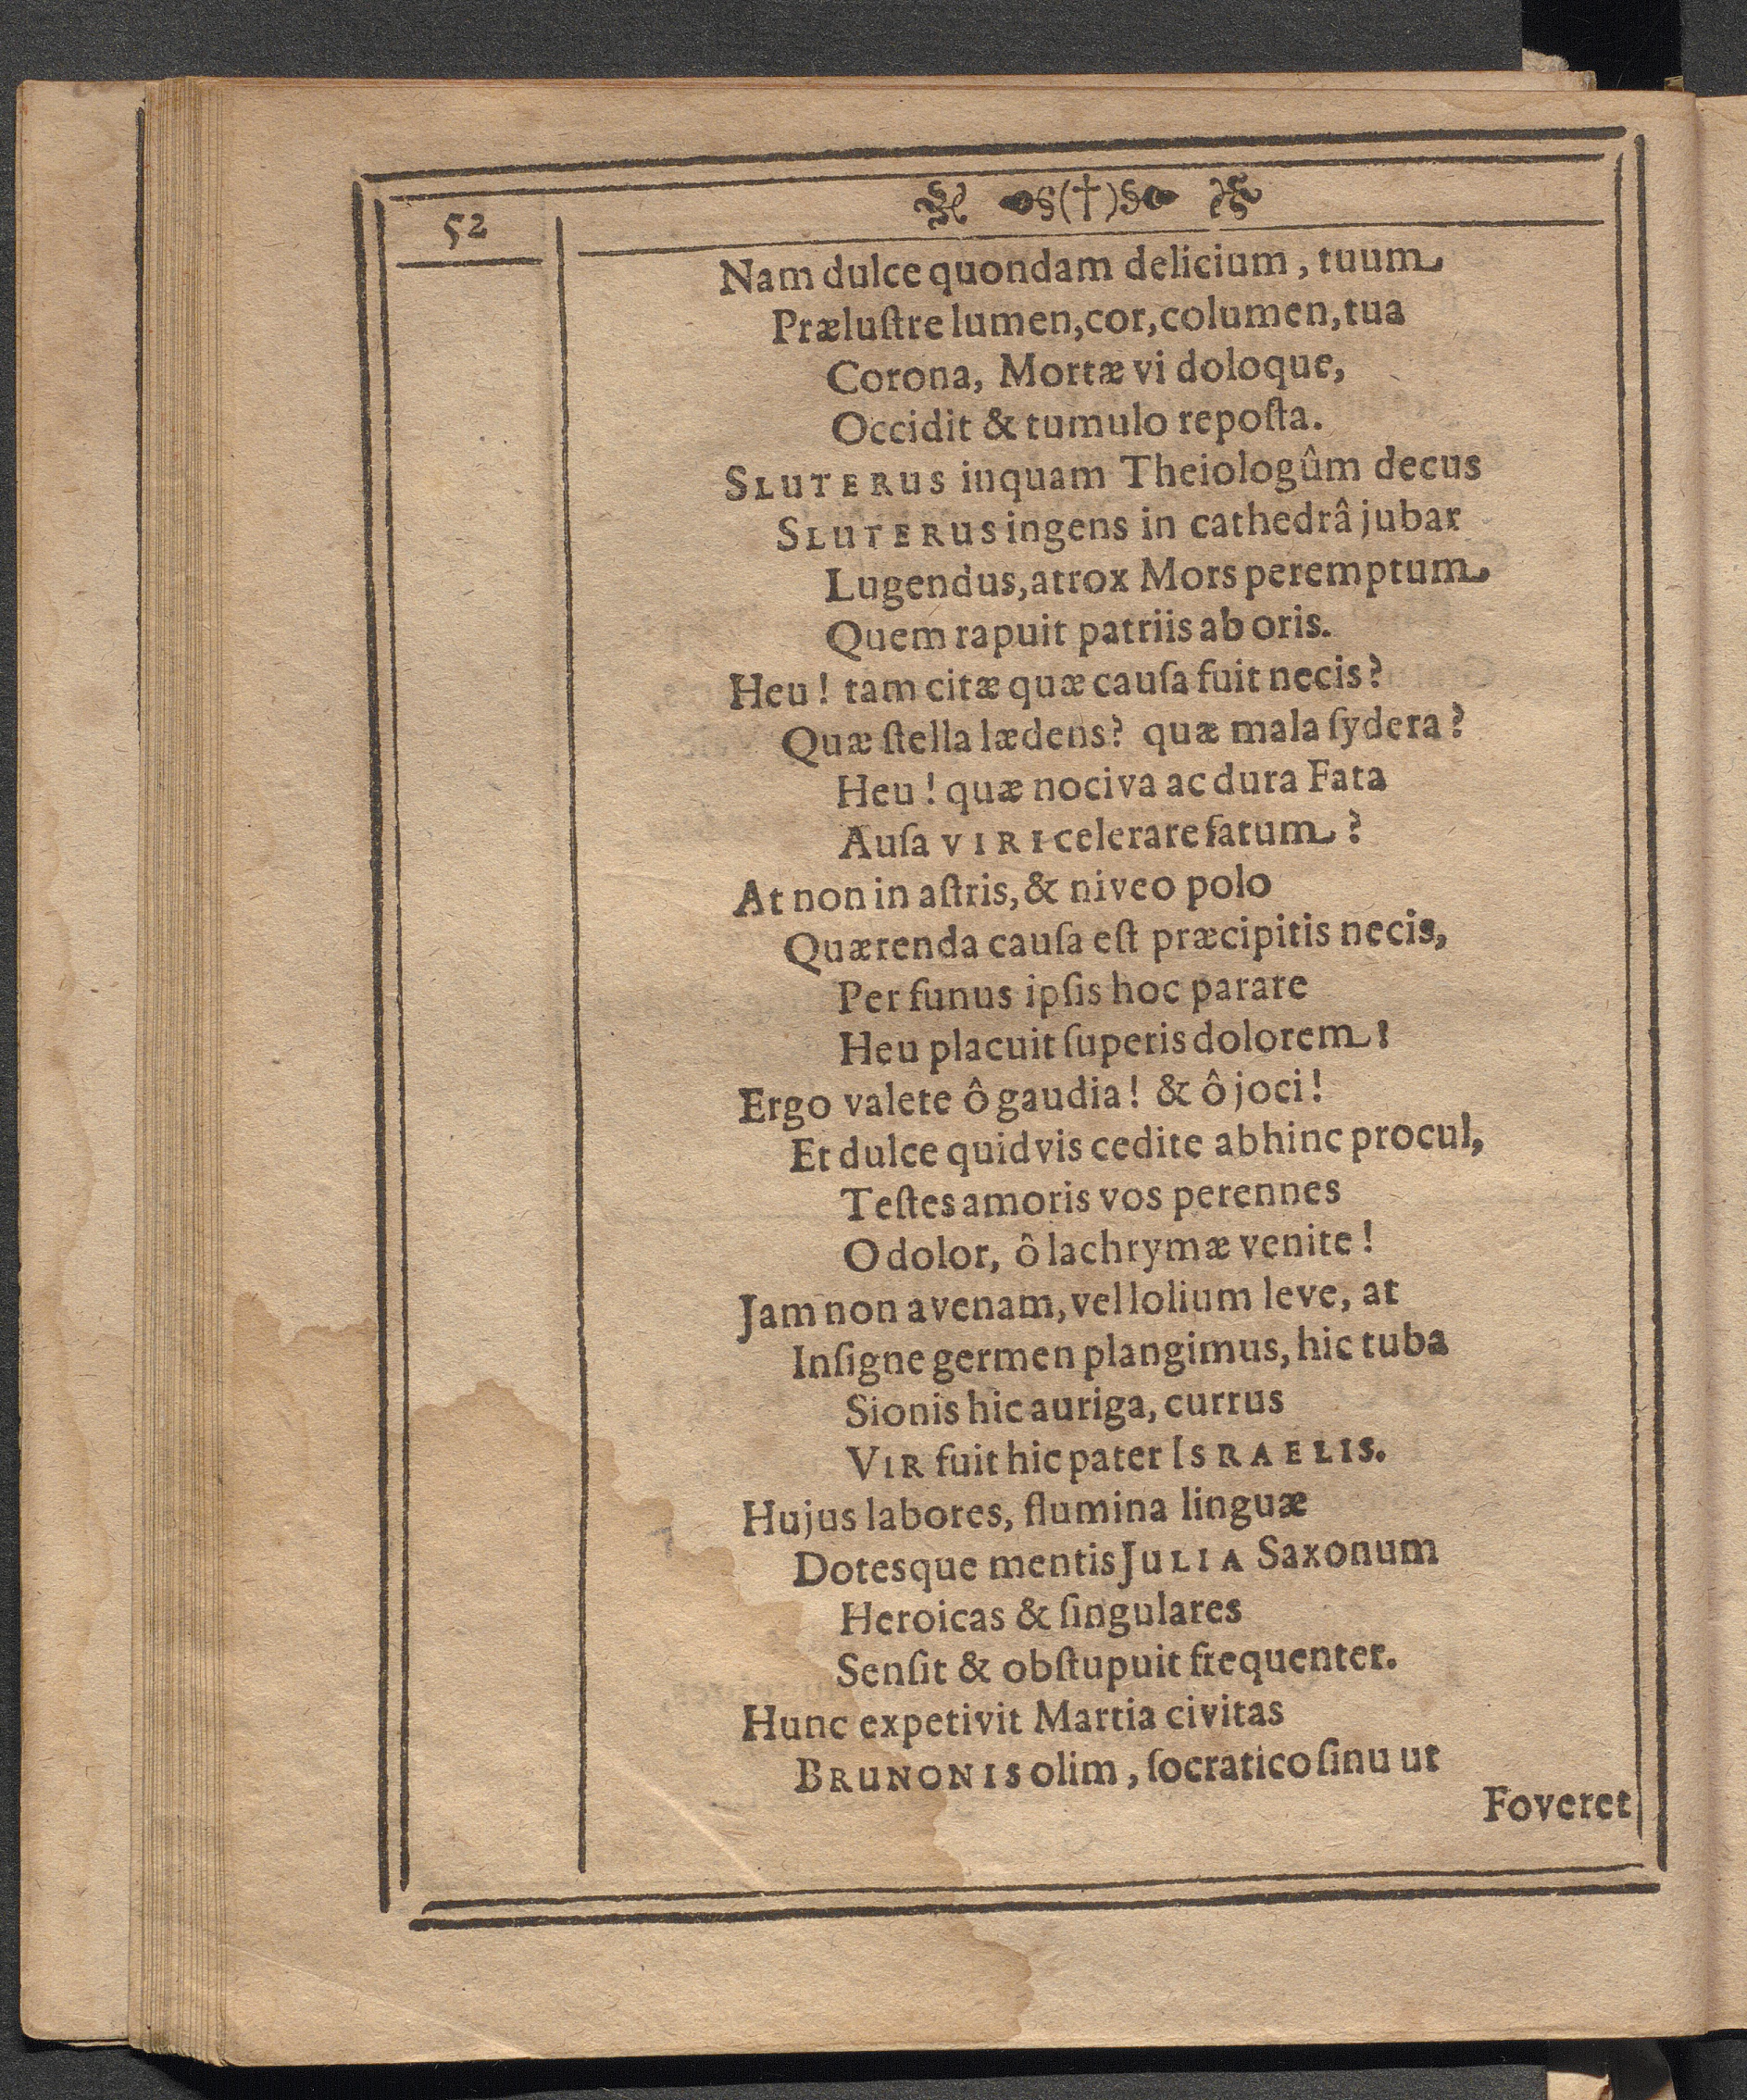 52
§(†)§
Nam dulce quondam delicium, tuum
Præluſtre lumen, cor, columen, tua
Corona, Mortæ vi doloque,
Occidit & tumulo repoſta.
SLUTERUS inquam Theiologûm decus
SLUTERUS ingens in cathedrâ jubar
Lugendus, atrox Mors peremptum
Quem rapuit patriis ab oris.
Heu! tam citæ quæ cauſa fuit necis?
Quæ ſtella lædens? quæ mala ſydera?
Heu! quæ nociva ac dura Fata
Auſa VIRI celerare fatum?
At non in aſtris, & niveo polo
Quærenda cauſa eſt præcipitis necis,
Per funus ipſis hoc parare
Heu placuit ſuperis dolorem!
Ergo valete ô gaudia! & ô joci!
Et dulce quidvis cedite abhinc procul,
Teſtes amoris vos perennes
O dolor, ô lachrymæ venite!
Jam non avenam, vel lolium leve, at
Inſigne germen plangimus, hic tuba
Sionis hic auriga, currus
VIR fuit hic pater ISRAELIS.
Hujus labores, flumina linguæ
Dotesque mentis JULIA Saxonum
Heroicas & ſingulares
Senſit & obſtupuit frequenter.
Hunc expetivit Martia civitas
BRUNONIS olim, ſocratico ſinu ut
Foveret